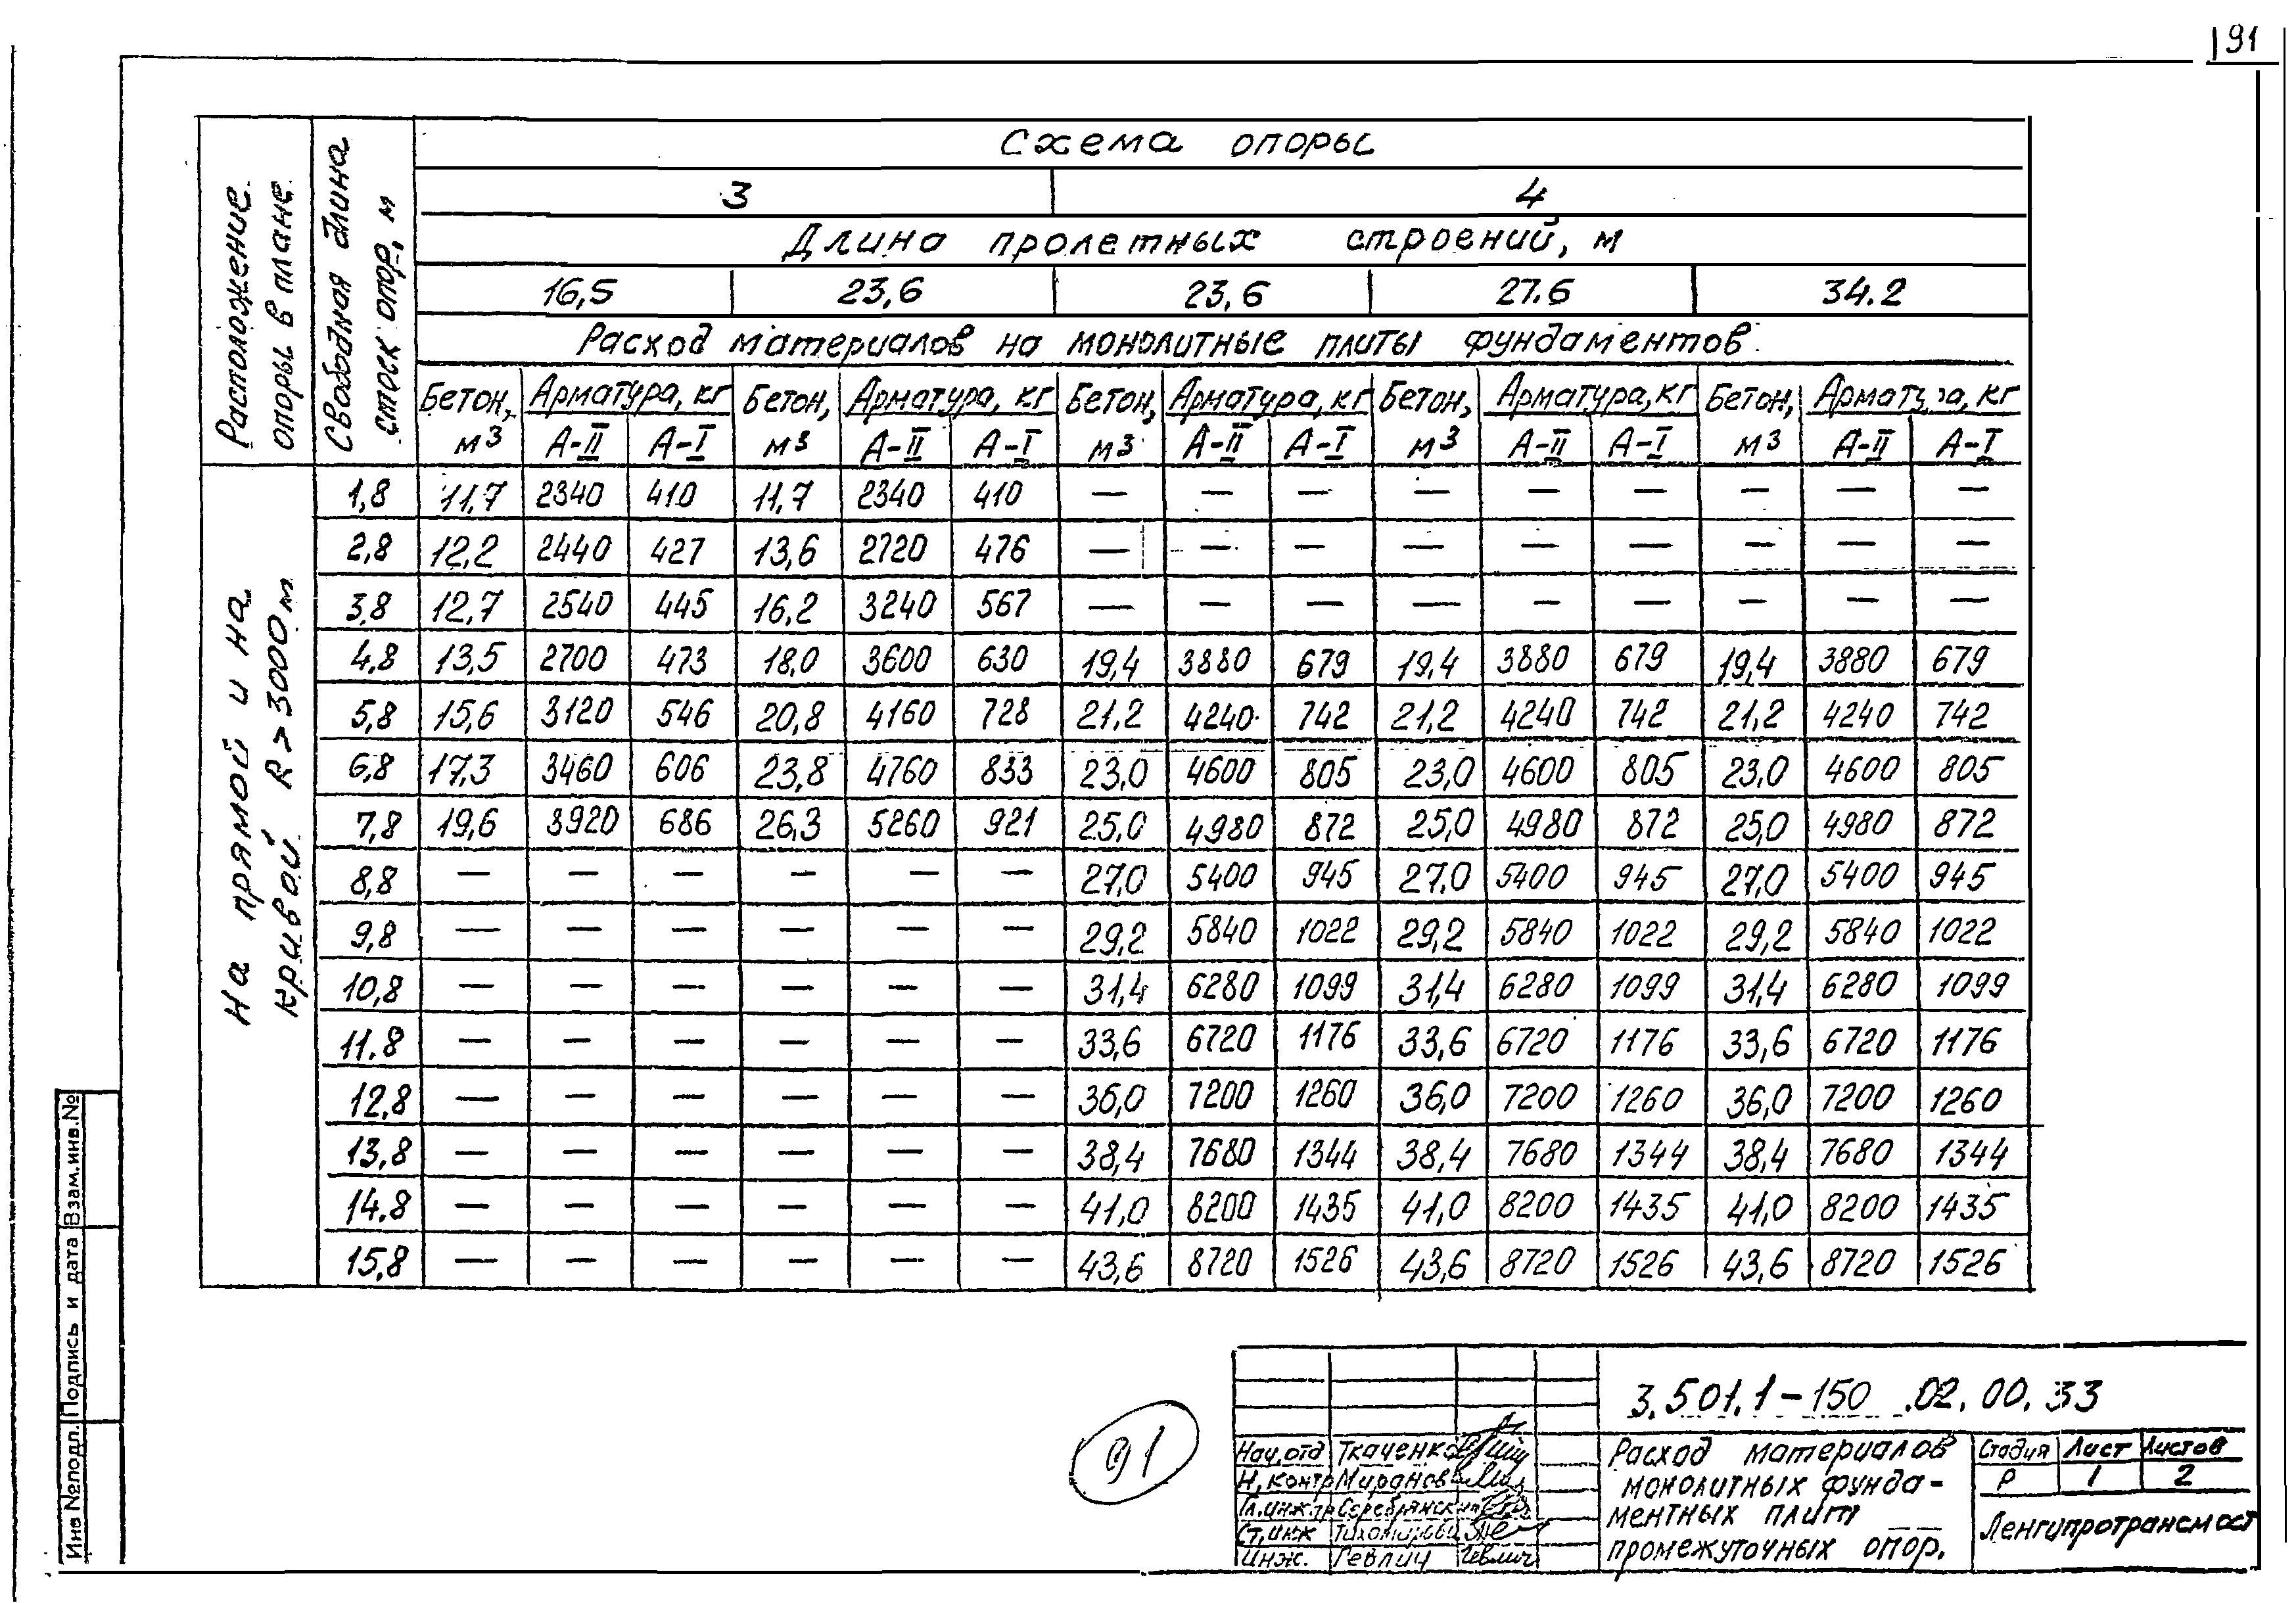 91
Расположение опоры в плане
Свободная длина стоек опор, м
Схема опоры
3 4
Длина пролетных строений, м
16,5 23,6 23,6 27.6 34.2
Расход материалов на монолитные плиты фундаментов
Бетон, м3 Арматура, кг Бетон, м3 Арматура, кг Бетон, м3 Арматура, кг Бетон, м3 Арматура, кг Бетон, м3 Арматура, кг
А-II А-I А-II А-I А-II А-I А-II А-I А-II А-I
На прямой и на кривой R>3000м
1,8 11,7 2340 410 11,7 2340 410 — — — — — — — — —
2,8 12,2 2440 427 13,6 2720 476 — — — — — — — — —
3,8 12,7 2540 445 16,2 3240 567 — — — — — — — — —
4,8 13,5 2700 473 18,0 3600 630 19,4 3880 679 19,4 3880 679 19,4 3880 679
5,8 15,6 3120 546 20,8 4160 728 21,2 4240 742 21,2 4240 742 21,2 4240 742
6,8 17,3 3460 606 23,8 4760 833 23,0 4600 805 23,0 4600 805 23,0 4600 805
7,8 19,6 3920 686 26,3 5260 921 25,0 4980 872 25,0 4980 872 25,0 4980 872
8,8 — — — — — — 27,0 5400 945 27,0 5400 945 27,0 5400 945
9,8 — — — — — — 29,2 5840 1022 29,2 5840 1022 29,2 5840 1022
10,8 — — — — — — 31,4 6280 1099 31,4 6280 1099 31,4 6280 1099
11.8 — — — — — — 33,6 6720 1176 33,6 6720 1176 33,6 6720 1176
12,8 — — — — — — 36,0 7200 1260 36,0 7200 1260 36,0 7200 1260
13,8 — — — — — — 38,4 7680 1344 38,4 7680 1344 38,4 7680 1344
14.8 — — — — — — 41,0 8200 1435 41,0 8200 1435 41,0 8200 1435
15,8 — — — — — — 43,6 8720 1526 43,6 8720 1526 43,6 8720 1526
Инв №подл. Подпись и дата Взам.инв.№
91
3.501.1-150 .02.00.33
Нач.отд Ткаченко
Н.контр Миранов
Гл.инж.пр Серебрянский
Ст.инж Тихомирова
Инж. Гевлич Гевлич
Расход материалов
монолитных фунда-
ментных плит
промежуточных опор.
Стадия Лист Листов
Р 1 2
Ленгипротрансмост